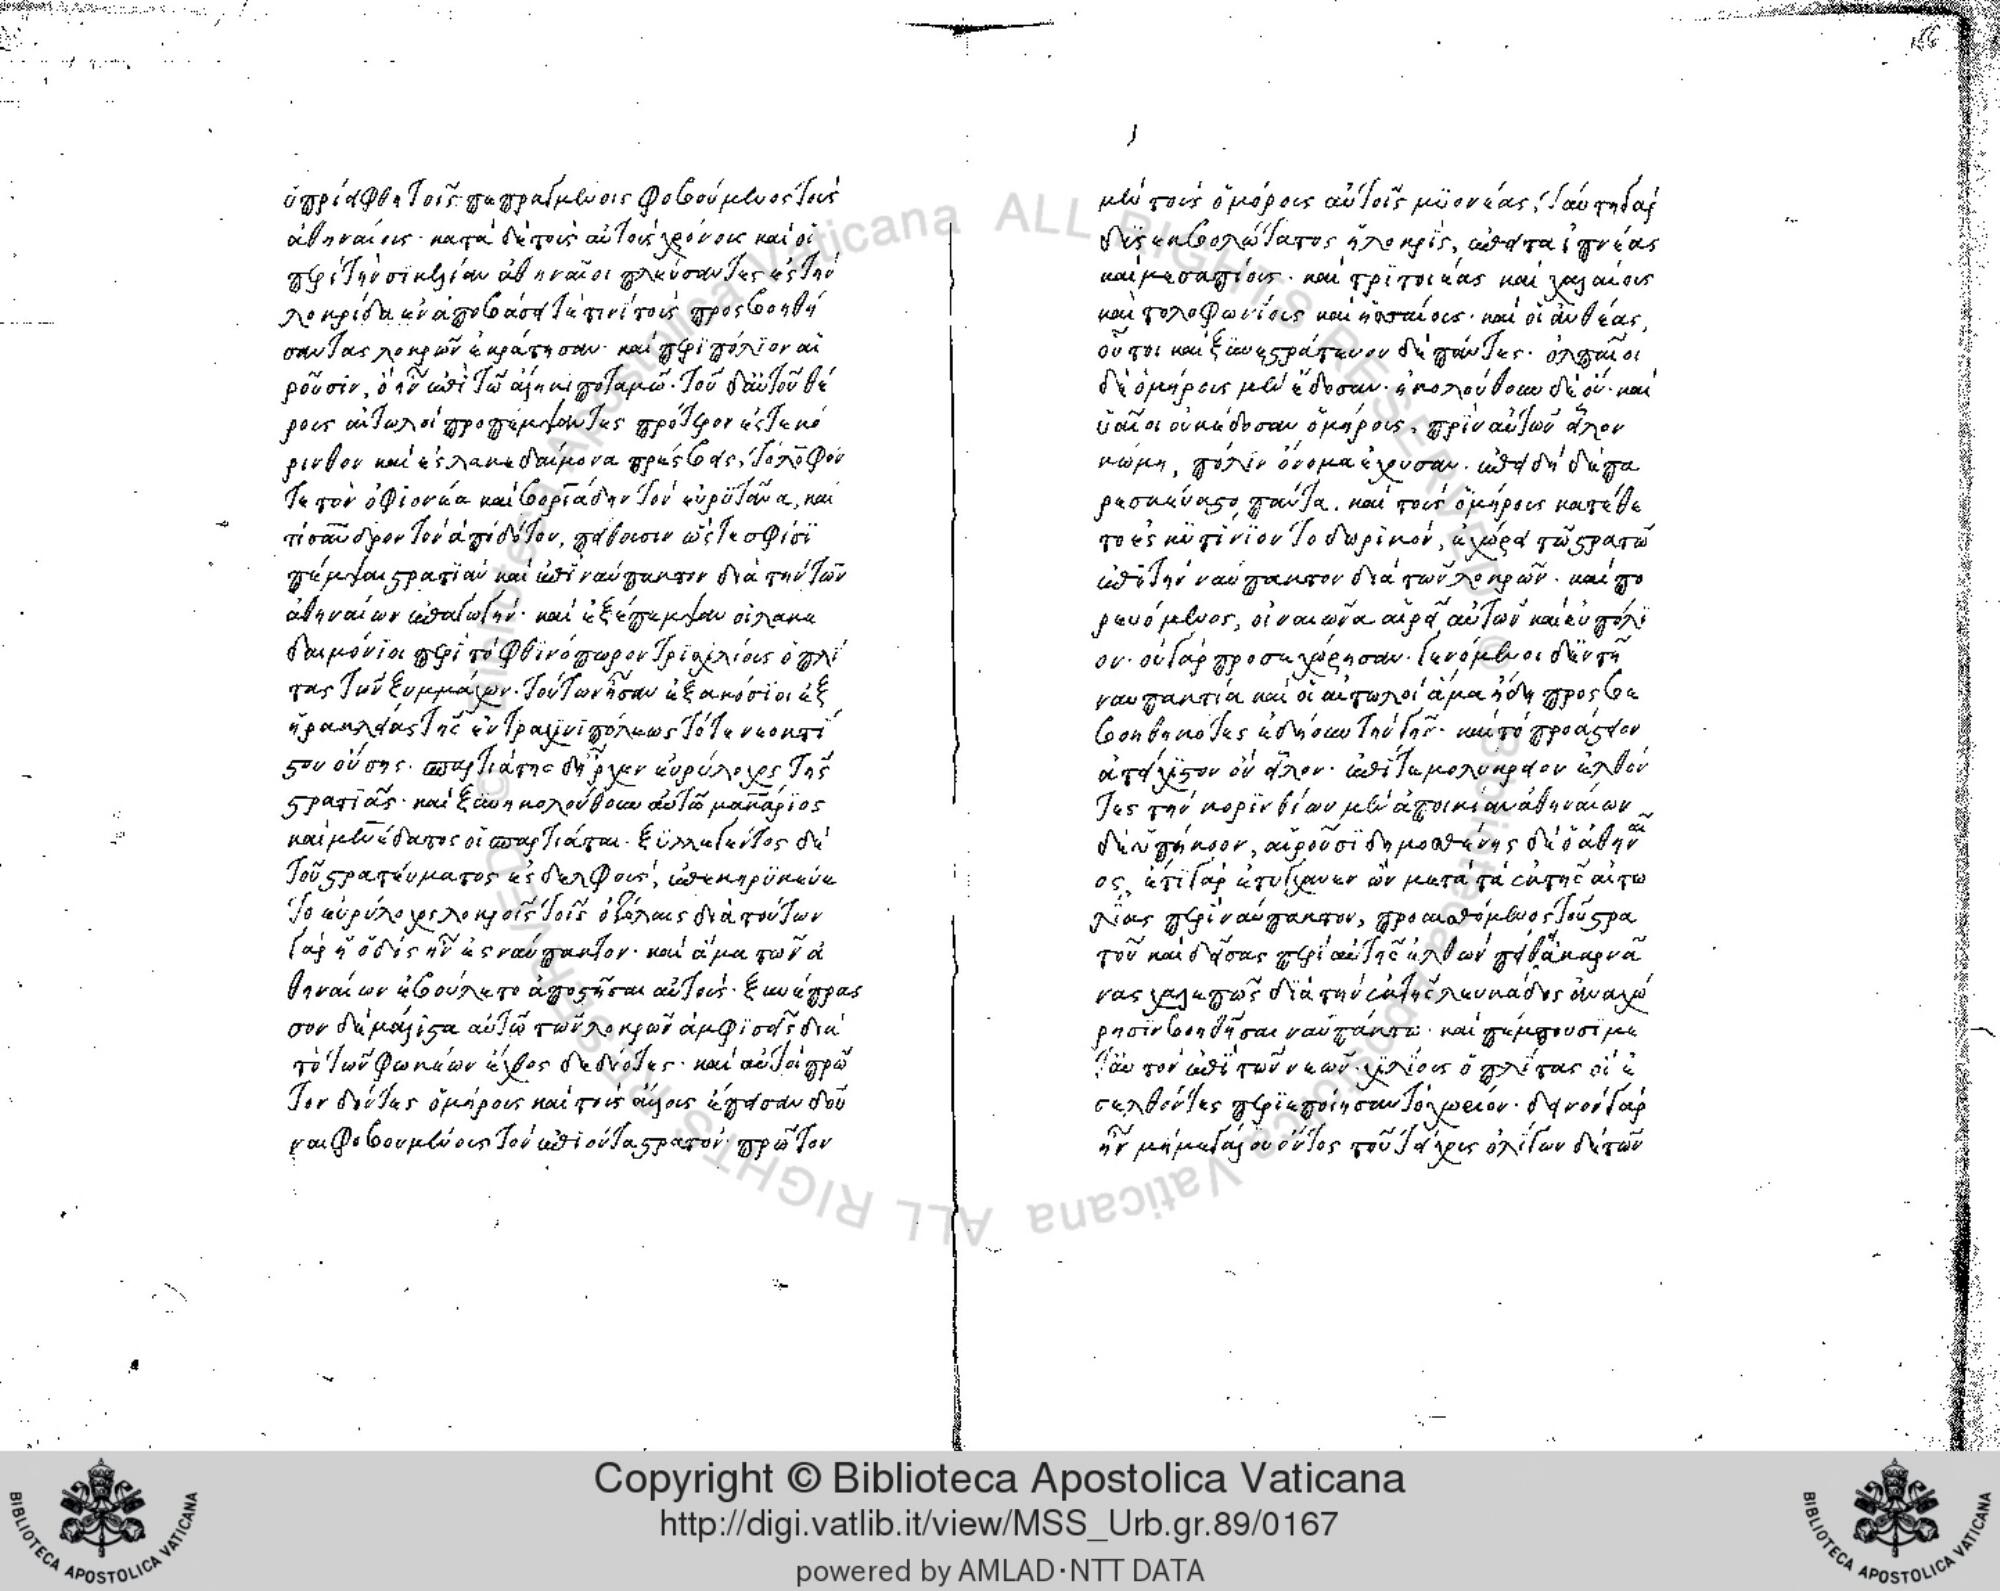 ὑπελείφθη τοῖς πεπραγμένοις φοβούμενος τοὺς
ἀθηναίους· κατὰ δὲ τοὺς αὐτοὺς χρόνους καὶ οἱ
περὶ τὴν σικελίαν ἀθηναῖοι πλεύσαντες ἐς τὴν
λοκρίδα ἐν ἀποβάσει τέ τινι τοὺς προσβοηθή
σαντας λοκρῶν ἐκράτησαν· καὶ περιπόλιον αἱ
ροῦσιν, ὃ ἦν ἐπὶ τῶ ἄληκι ποταμῶ· τοῦ δ' αὐτοῦ θέ
ρους αἰτωλοὶ προπέμψαντες πρότερον ἔς τε κό
ρινθον καὶ ἐς λακεδαίμονα πρέσβεις, τόλοφόν
τε τὸν ὀφιονέα καὶ βοριάδην τὸν εὐρυτᾶνα, καὶ
τίσανδρον τὸν ἀποδοτὸν, πείθουσιν ὥστε σφίσι
πέμψαι στρατιὰν καὶ ἐπὶ ναύπακτον διὰ τὴν τῶν
ἀθηναίων ἐπαγωγήν· καὶ ἐξέπεμψαν οἱ λακε
δαιμόνιοι περὶ τὸ φθινόπωρον τρισχιλίους ὁπλί
τας τῶν ξυμμάχων· τούτων ἦσαν ἑξακόσιοι ἐξ
ἡρακλείας τῆς ἐν τραχῖνι πόλεως τότε νεοκτί
στου οὔσης· σπαρτιάτης δ' ἦρχεν εὐρύλοχος τῆς
στρατιᾶς· καὶ ξυνηκολούθουν αὐτῶ μακάριος
καὶ μενέδατος οἱ σπαρτιάται· ξυλλεγέντος δὲ
τοῦ στρατεύματος ἐς δελφοὺς, ἐπεκηρυκεύε
το εὐρύλοχος λοκροῖς τοῖς ὀζόλαις διὰ τούτων
γὰρ ἡ ὁδὸς ἦν ἐς ναύπακτον· καὶ ἅμα τῶν ἀ
θηναίων ἐβούλετο ἀποστῆσαι αὐτούς· ξυνέπρασ
σον δὲ μάλιστα αὐτῶ τῶν λοκρῶν ἀμφισσεῖς διὰ
τὸ τῶν φωκέων ἔχθος δεδιότες· καὶ αὐτοὶ πρῶ
τον δόντες ὁμήρους καὶ τοὺς ἄλλους ἔπεισαν δοῦ
ναι φοβουμένους τὸν ἐπιόντα στρατόν· πρῶτον
μὲν τοὺς ὁμόρους αὐτοῖς μυονέας, ταύτη γὰρ
δυσεσβολώτατος ἡ λοκρὶς, ἔπειτα ἰπνέας
καὶ μεσαπίους· καὶ τριτοιέας καὶ χαλαίους
καὶ τολοφωνίους καὶ ἡσσαίους· καὶ οἰανθέας,
οὗτοι καὶ ξυνεστράτευον δὲ πάντες· ὀλπαῖοι
δὲ ὁμήρους μὲν ἔδοσαν· ἠκολούθουν δὲ οὔ· καὶ
ὑαῖοι οὐκ ἔδοσαν ὁμήρους, πρὶν αὐτῶν εἷλον
κώμην, πόλιν ὄνομα ἔχουσαν· ἐπειδὴ δὲ πα
ρεσκεύαστο πάντα, καὶ τοὺς ὁμήρους κατέθε
το ἐς κυτίνιον τὸ δωρικόν, ἐχώρει τῶ στρατῶ
ἐπὶ τὴν ναύπακτον διὰ τῶν λοκρῶν· καὶ πο
ρευόμενος, οἰνεῶνα αἱρεῖ αὐτῶν καὶ εὐπόλι
ον· οὐ γὰρ προσεχώρησαν· γενόμενοι δ' ἐν τῆ
ναυπακτία καὶ οἱ αἰτωλοὶ ἅμα ἤδη προσβε
βοηθηκότες ἐδήουν τὴν γῆν· καὶ τὸ προάστειον
ἀτείχιστον ὂν εἷλον· ἐπί τε μολύκρειον ἐλθόν
τες τὴν κορινθίων μὲν ἀποικίαν ἀθηναίων
δὲ ὑπήκοον, αἱροῦσι δημοσθένης δὲ ὁ ἀθηναῖ
ος, ἔτι γὰρ ἐτύγχανεν ὢν μετὰ τὰ ἐκ τῆς αἰτω
λίας περὶ ναύπακτον, προαισθόμενος τοῦ στρα
τοῦ καὶ δείσας περὶ αὐτῆς ἐλθὼν πείθει ἀκαρνᾶ
νας χαλεπῶς διὰ τὴν ἐκ τῆς λευκάδος ἀναχώ
ρησιν βοηθῆσαι ναυπάκτω· καὶ πέμπουσι με
τ' αὐτοῦ ἐπὶ τῶν νεῶν χιλίους ὁπλίτας οἳ ἐ
σελθόντες περιεποίησαν τὸ χωρίον· δεινὸν γὰρ
ἦν μὴ μεγάλου ὄντος τοῦ τείχους ὀλίγων δὲ τῶν
Copyright © Biblioteca Apostolica Vaticana
http://digi.vatlib.it/view/MSS_Urb.gr.89/0167
powered by AMLAD·NTT DATA